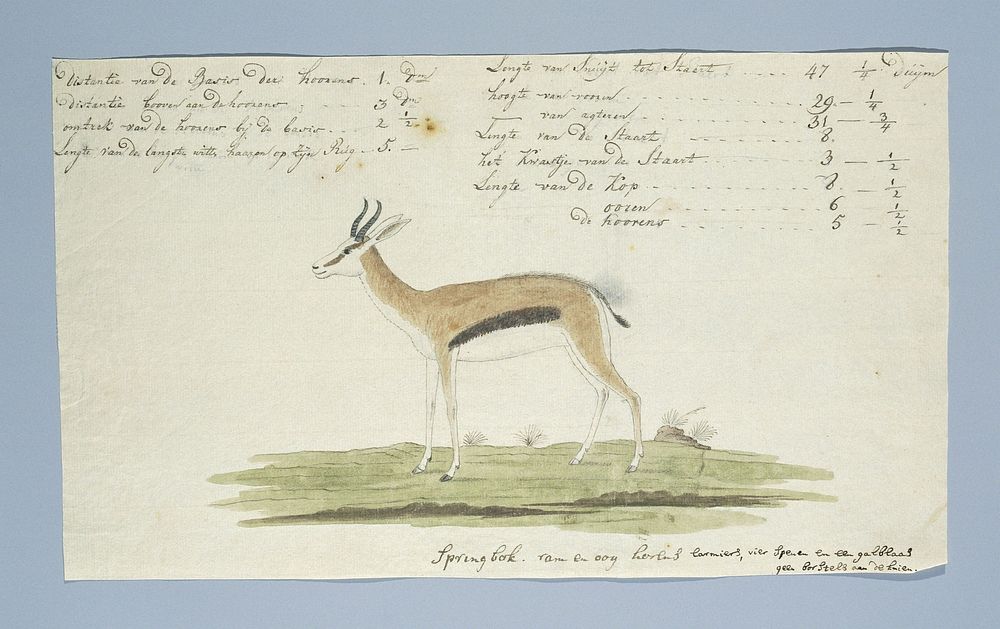 Distantie van de Basis der hoorens. 1. Dm
distantie booven aan de hoorens 3 Dm
omtrek van de hoorens bij de basis 2 1/2
Lengte van de langste witte haaren op zijn Rug 5. —
Lengte van Snuijt tot Staert 47 1/4 Duijm
hoogte van vooren 29 — 1/4
van agteren 31 — 3/4
Lengte van de Staart 8.
het Kwastje van de Staart 3 — 1/2
Lengte van de Kop 8. — 1/2
ooren 6 — 1/2
de hoorens 5 — 1/2
Springbok. ram en ooy horens larmiers, vier Spenen en een galblaas
geen borstels aan de knien.